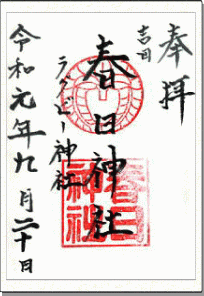 奉拝
吉田
春日神社
ラグビー神社
令和元年九月二十日
春日神社